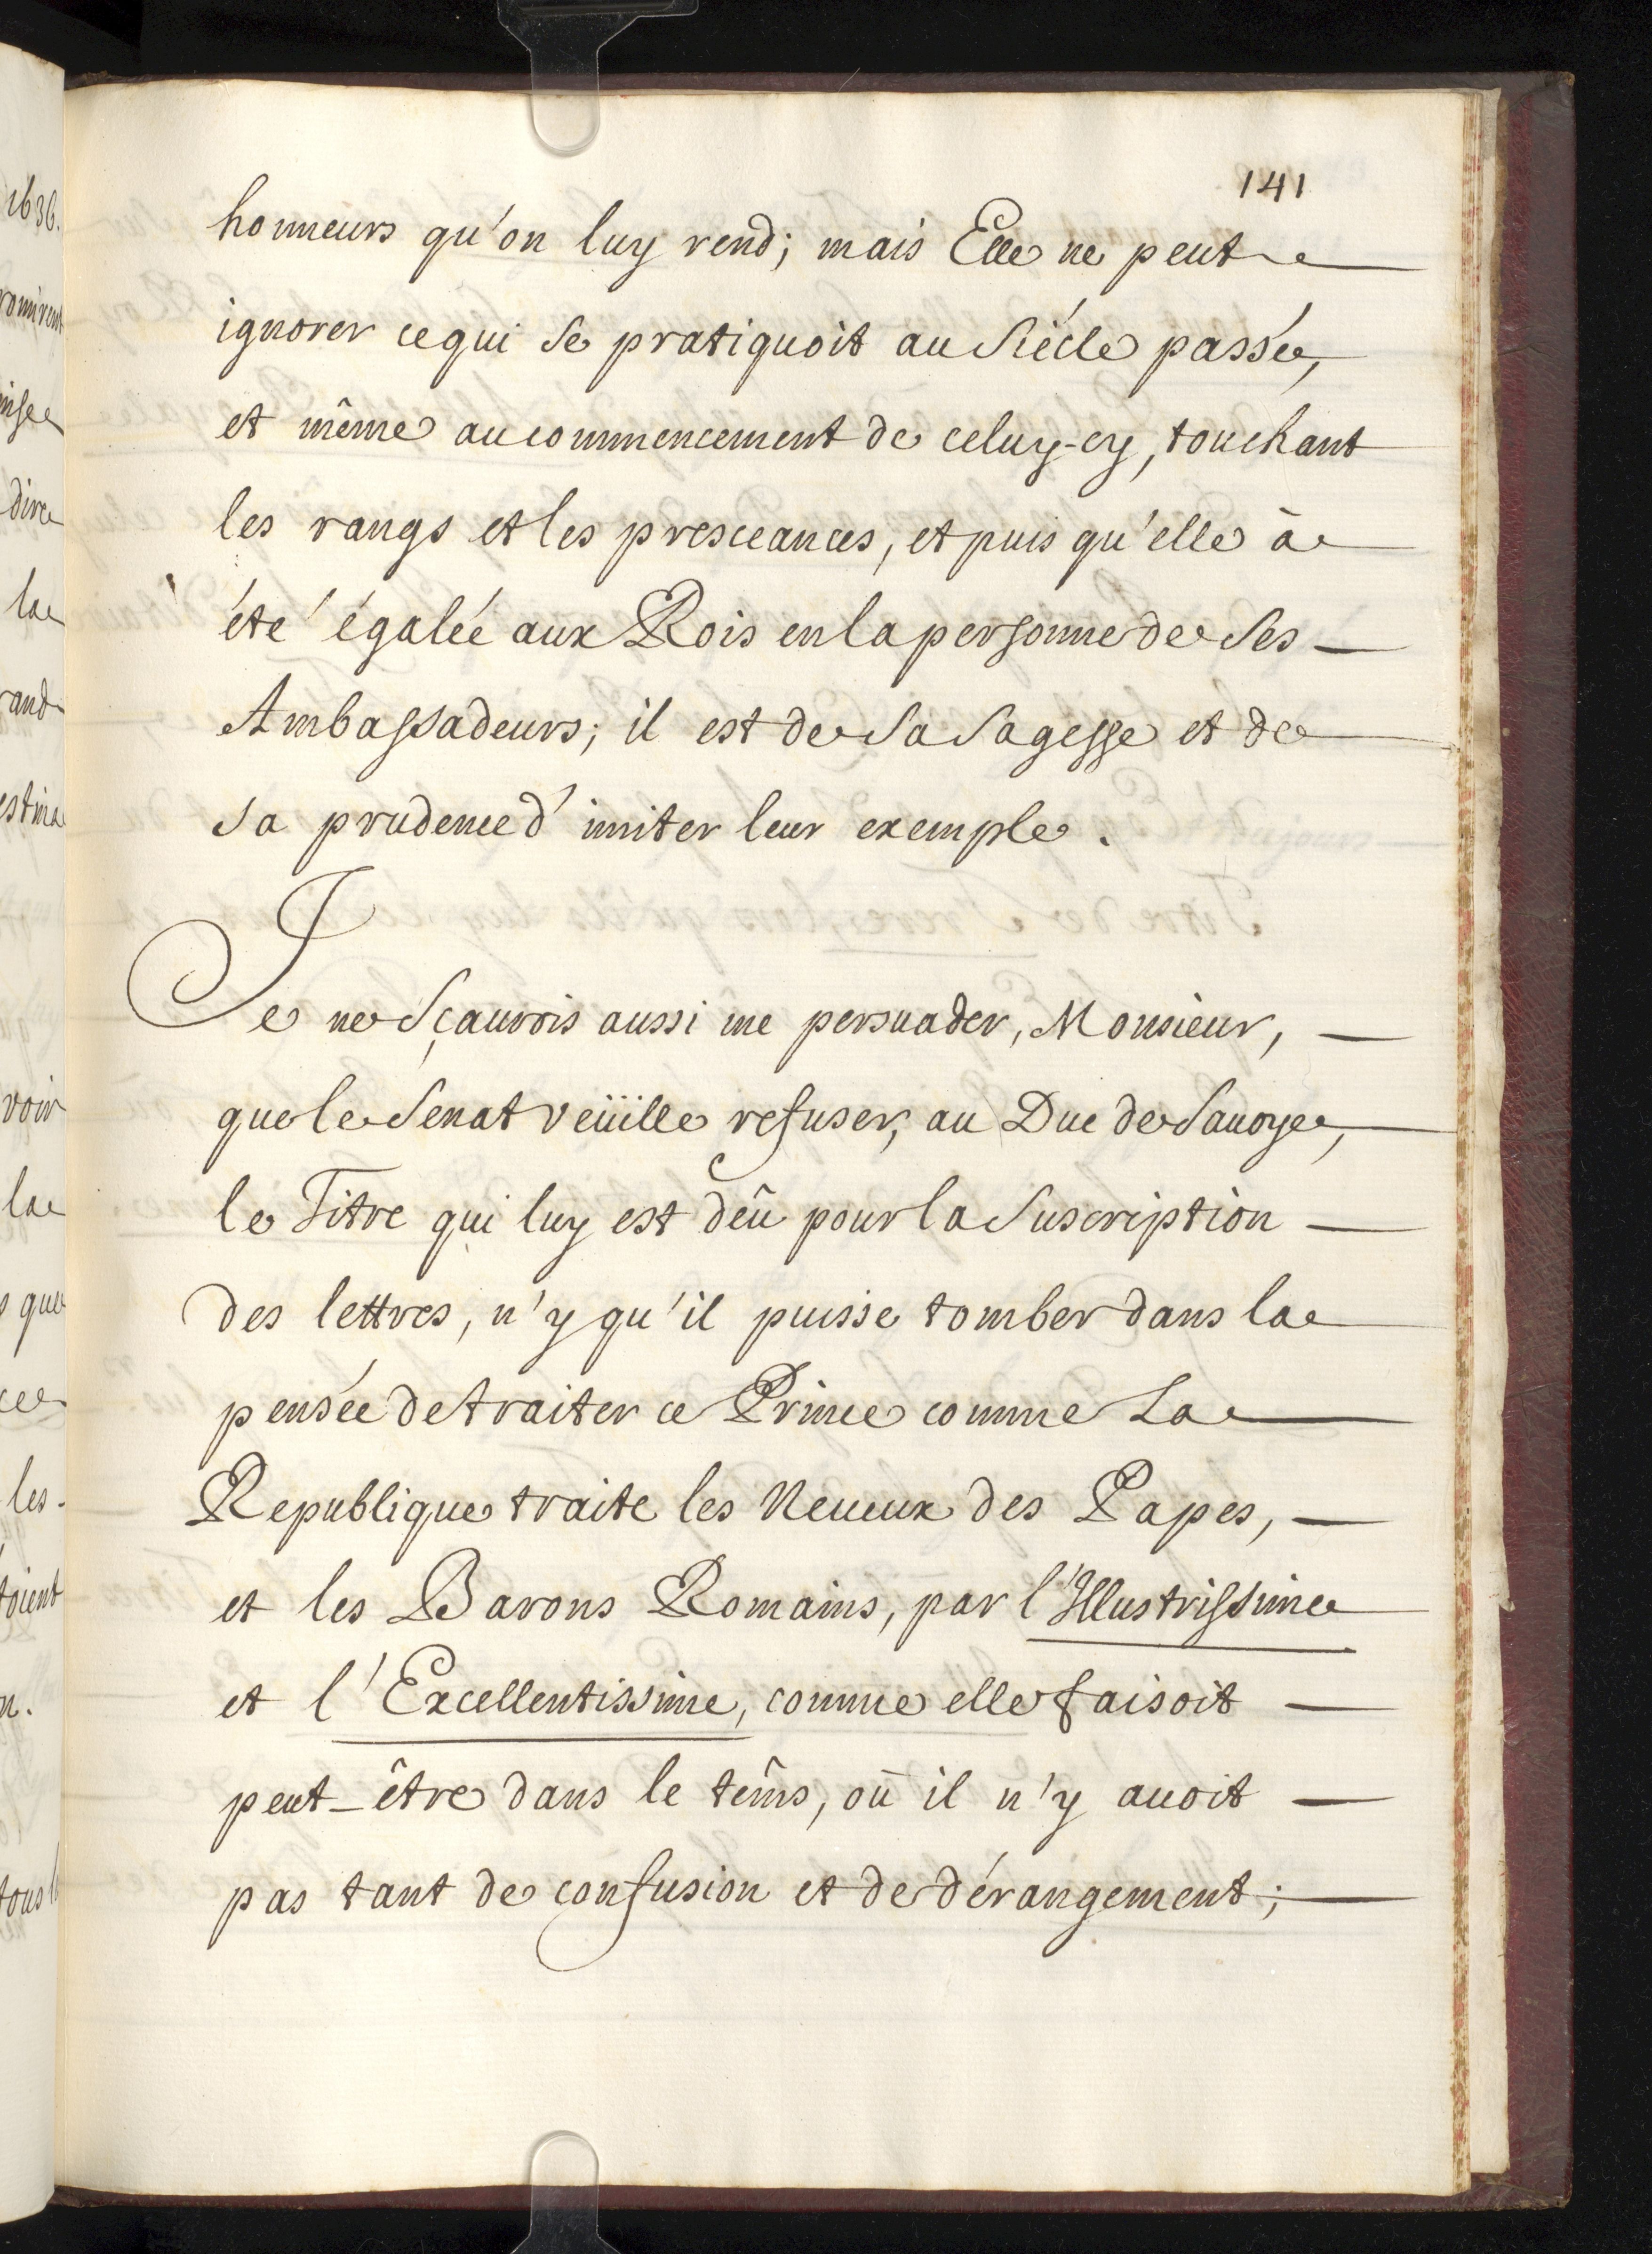 141
honneurs qu'on luy rend; mais Elle ne peut
ignorer ce qui se pratiquoit au Siécle passé,
et même au commencement de celuy-cy, touchant
les rangs et les presceances, et puis qu'elle à
été égalée aux Rois en la personne de Ses
Ambassadeurs; il est de Sa Sagesse et de
Sa prudence d'imiter leur exemple.
Je ne Sçaurois aussi me persuader, Monsieur,
que le Senat veüille refuser, au Duc de Sauoye,
le Titre qui luy est dêu pour la Suscription
des lettres, n'y qu'il puisse tomber dans la
pensée de traiter ce Prince comme La
Republique traite les Neueux des Papes,
et les Barons Romains, par l'Illustrissime
et l'Excellentissime, comme elle faisoit
peut-être dans le têms, où il n'y auoit
pas tant de confusion et de dérangement;